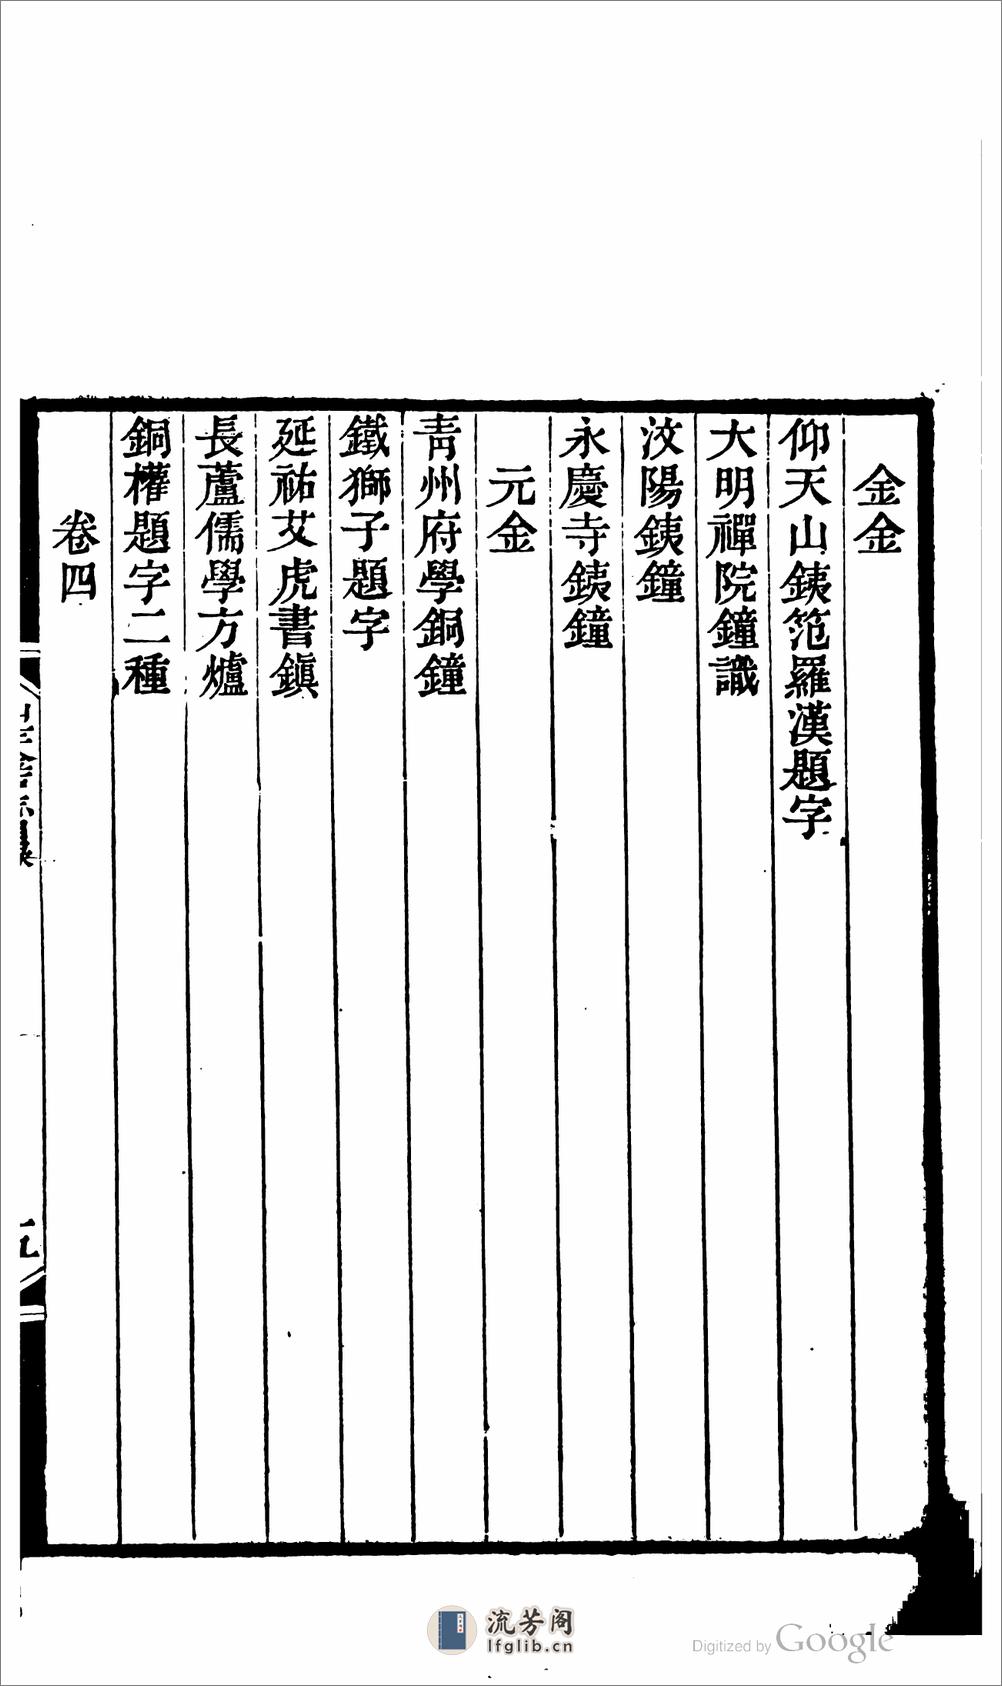 金金
仰天山銕笵羅漢題字
大明禪院鐘識
汶陽銕鐘
永慶寺銕鐘
元金
青州府學銅鐘
鐵獅子題字
延祐艾虎書鎭
長蘆儒學方爐
銅權題字二種
卷四
五
流芳阁
lfglib.cn
Digitized by Google